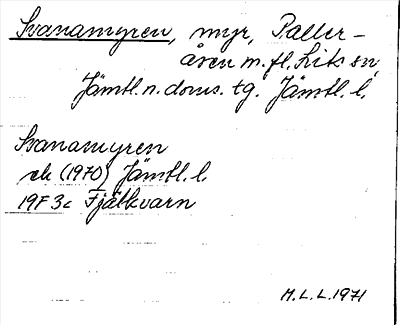 Svanamyren, myr, Paller-
åsen m.fl. Lits sn,
Jämtl. n. doms. tg. Jämtl. l.
Svanamyren
ek (1970) Jämtl. l.
19F 3c Fjälkvarn
M.L.L. 1971